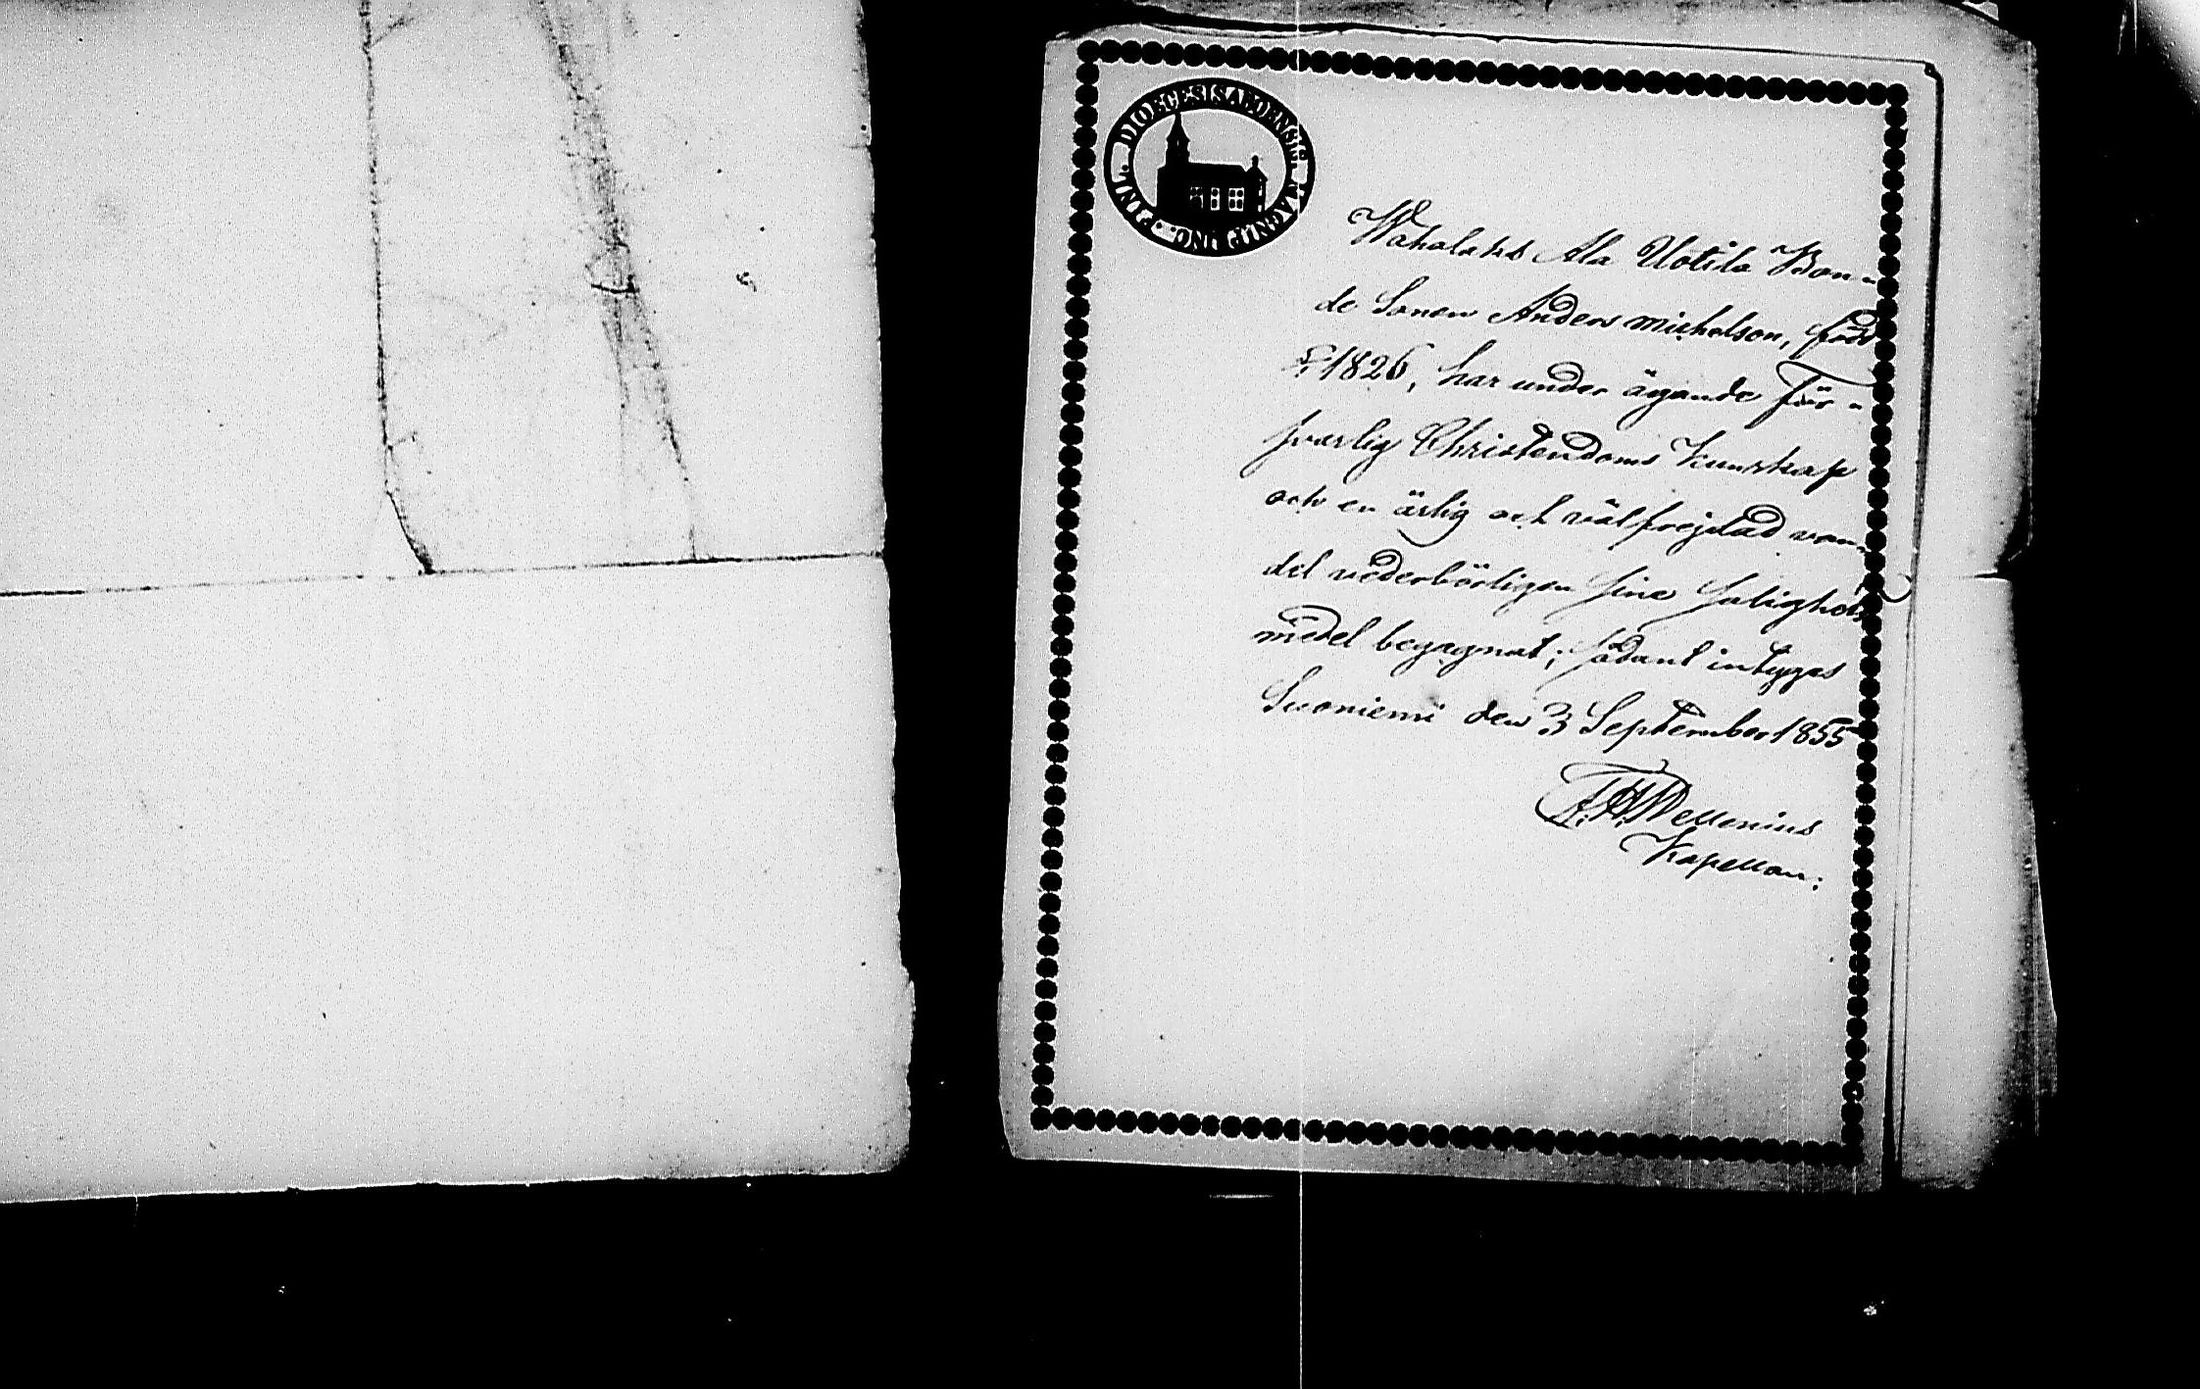 DIOECESIS ABOENSIS MAGNI PRINC. FINL.
Wahalahd Ala Uotila Bon-
de Sonen Anders Michelson, född
1826, har under ägande För-
svarlig Christendoms Kunskap
och en ärlig och välfrejdad van-
del vederbörligen sine Salighets
medel begagnat; sådant intygas
Suoniemi den 3 September 1855
Kapellan.